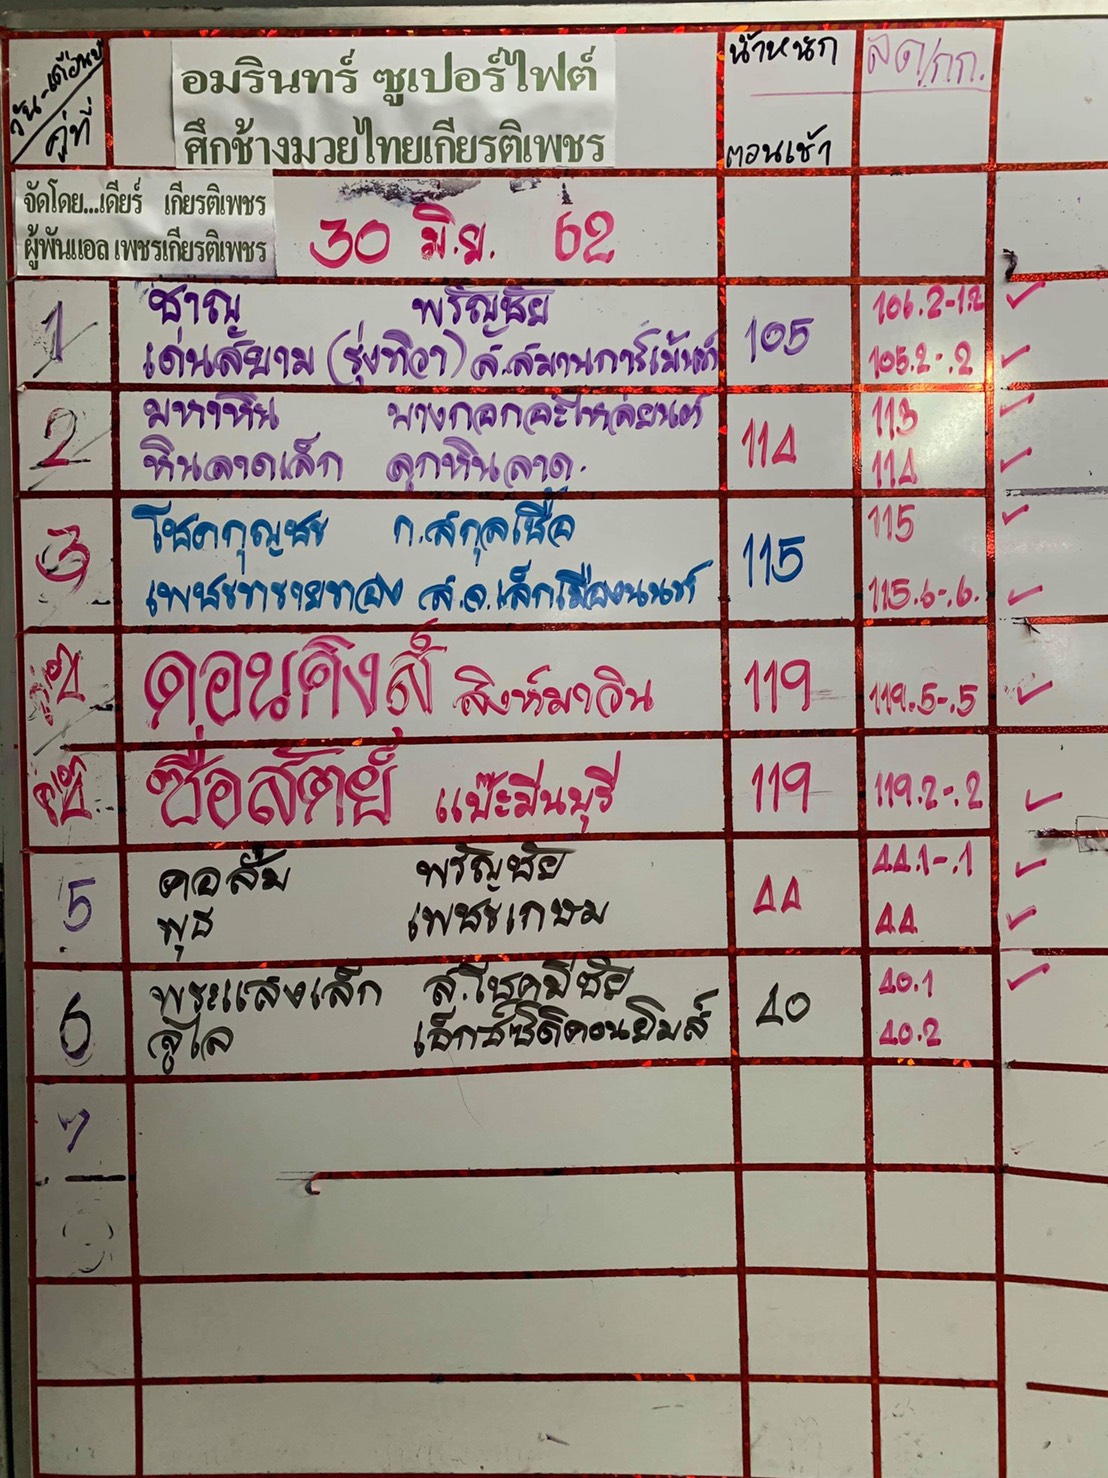 วัน-เดือน-ปี
คู่ที่
อมรินทร์ ซูเปอร์ไฟต์
ศึกช้างมวยไทยเกียรติเพชร
น้ำหนัก
ตอนเช้า
ลด/กก.
จัดโดย...เดียร์ เกียรติเพชร
ผู้พันแอล เพชรเกียรติเพชร
30 มิ.ย. 62
1
ชาญ พรัญชัย
106.2-1.2
เด่นสยาม (รุ่งทิวา) ส.สมาน
105
105.2-.2
2
มหาหิน บางกอกอะไหล่ยนต์
113
หินลาดเล็ก ลูกหินลาด.
114
114
3
โชคกุญชร ก.สกุลเชื้อ
115
115
เพชรทรายทอง ส.จ.เล็กเมืองนนท์
115.6-.6.
ดอนคิงส์ สิงห์มาวิน
119
119.5-.5
ซื่อสัตย์ แป๊ะมีนบุรี
119
119.2-.2
5
คอสั้น พรัญชัย
44
44.1-.1
พุธ เพชรเกษม
44
6
พระแสงเล็ก ส.โชคมีชัย
40
40.1
จูไล เล็กซ์ซิติคอนยิมส์
40.2
7